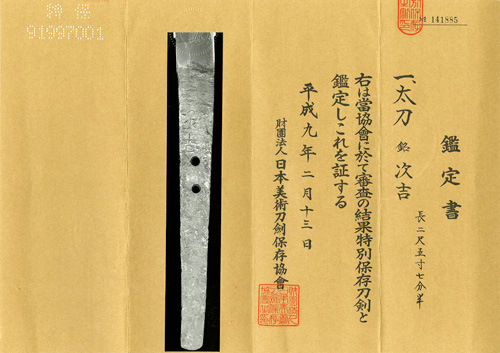 鑑定書
一、太刀 銘 次吉
長二尺五寸七分半
右は當協會に於て審査の結果特別保存刀剣と
鑑定しこれを証する
平成九年二月十三日
財團法人日本美術刀劍保存協會
№ 141885
91997001